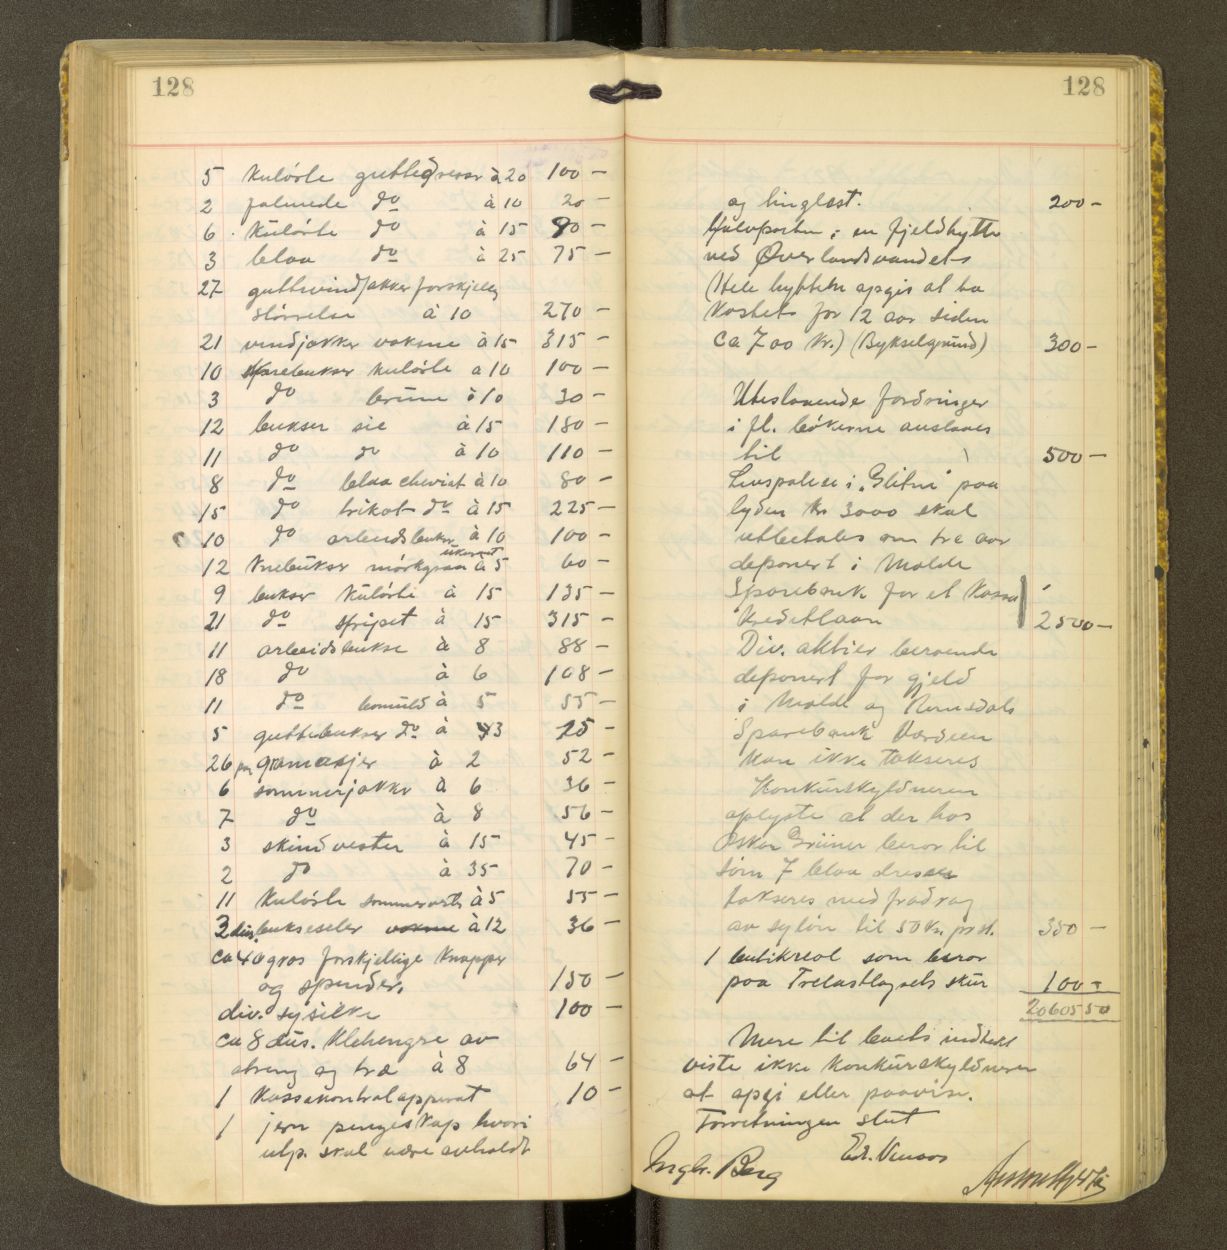 128
5 Kulørte guttedresser à 20 100 –
2 falmede do à 10 20 –
6 Kulørte do à 15 90 –
3 blaa do à 25 75 –
27 guttevindjakker forskjellig
størrelse à 10 270 –
21 vindjakker voksne à 15 315 –
10 bukser kulørte a 10 100 –
3 do brune à 10 30 –
12 bukser sie à 15 180 –
11 do do à 10 110 –
8 do blaa cheviot à 10 80 –
15 do trikot do à 15 225 –
10 do arbeidsbukser à 10 100 –
12 Knebukser mørkgraa ukurant à 5 60 –
9 bukser kulørte à 15 135 –
21 do stripet à 15 315 –
11 arbeidsbukse à 8 88 –
18 do à 6 108 –
11 do bomuld à 5 55 –
5 guttebukser do à 3 15 –
26 par gamasjer à 2 52 –
6 sommerjakker à 6 36 –
7 do à 8 56 –
3 skindvester à 15 45 –
2 do à 35 70 –
11 Kulørte sommervester à 5 55 –
3 dus. bukseseler voksne à 12 36 –
ca 40 gros forskjellige Knapper
og spender. 150 –
div. sysilke 100 –
ca 8 dus. Klehengre av
streng og træ à 8 64 –
1 Kassakontrolapperat 10 –
1 jern pengeskap hvori
utp. skal være avholdt
128
og tinglæst. 200 –
Halvparten i en fjeldhytte
ved Øverlandsvandets
(Hele hytten opgis at ha
kostet for 12 aar siden
ca 700 kr.) (Bykselgrund) 300 –
Utestaaende fordringer
i fl. bøkerne anslaaes
til 500 –
Livspolise i "Glitni" paa
lyden kr 3000 skal
utbetales om tre aar
deponert i Molde
Sparebank for et Kassa
Kreditlaan 2500 –
Div. aktier beroende
deponert for gjeld
i Molde og Romsdals
Sparebank Værdien
kan ikke takseres
Konkursskyldneren
oplyste at der hos
Oskar Grüner beror til
søm 7 blaa dresser
takseres med fradrag
av syløn til 50 kr. pr st. 350 –
1 butikreol som beror
paa Trelastlagets skur 100 –
20605 50
Mere til boets indhold
viste ikke konkursskyldneren
at opgi eller paavise.
Forretningen slut
Ingbr. Berg